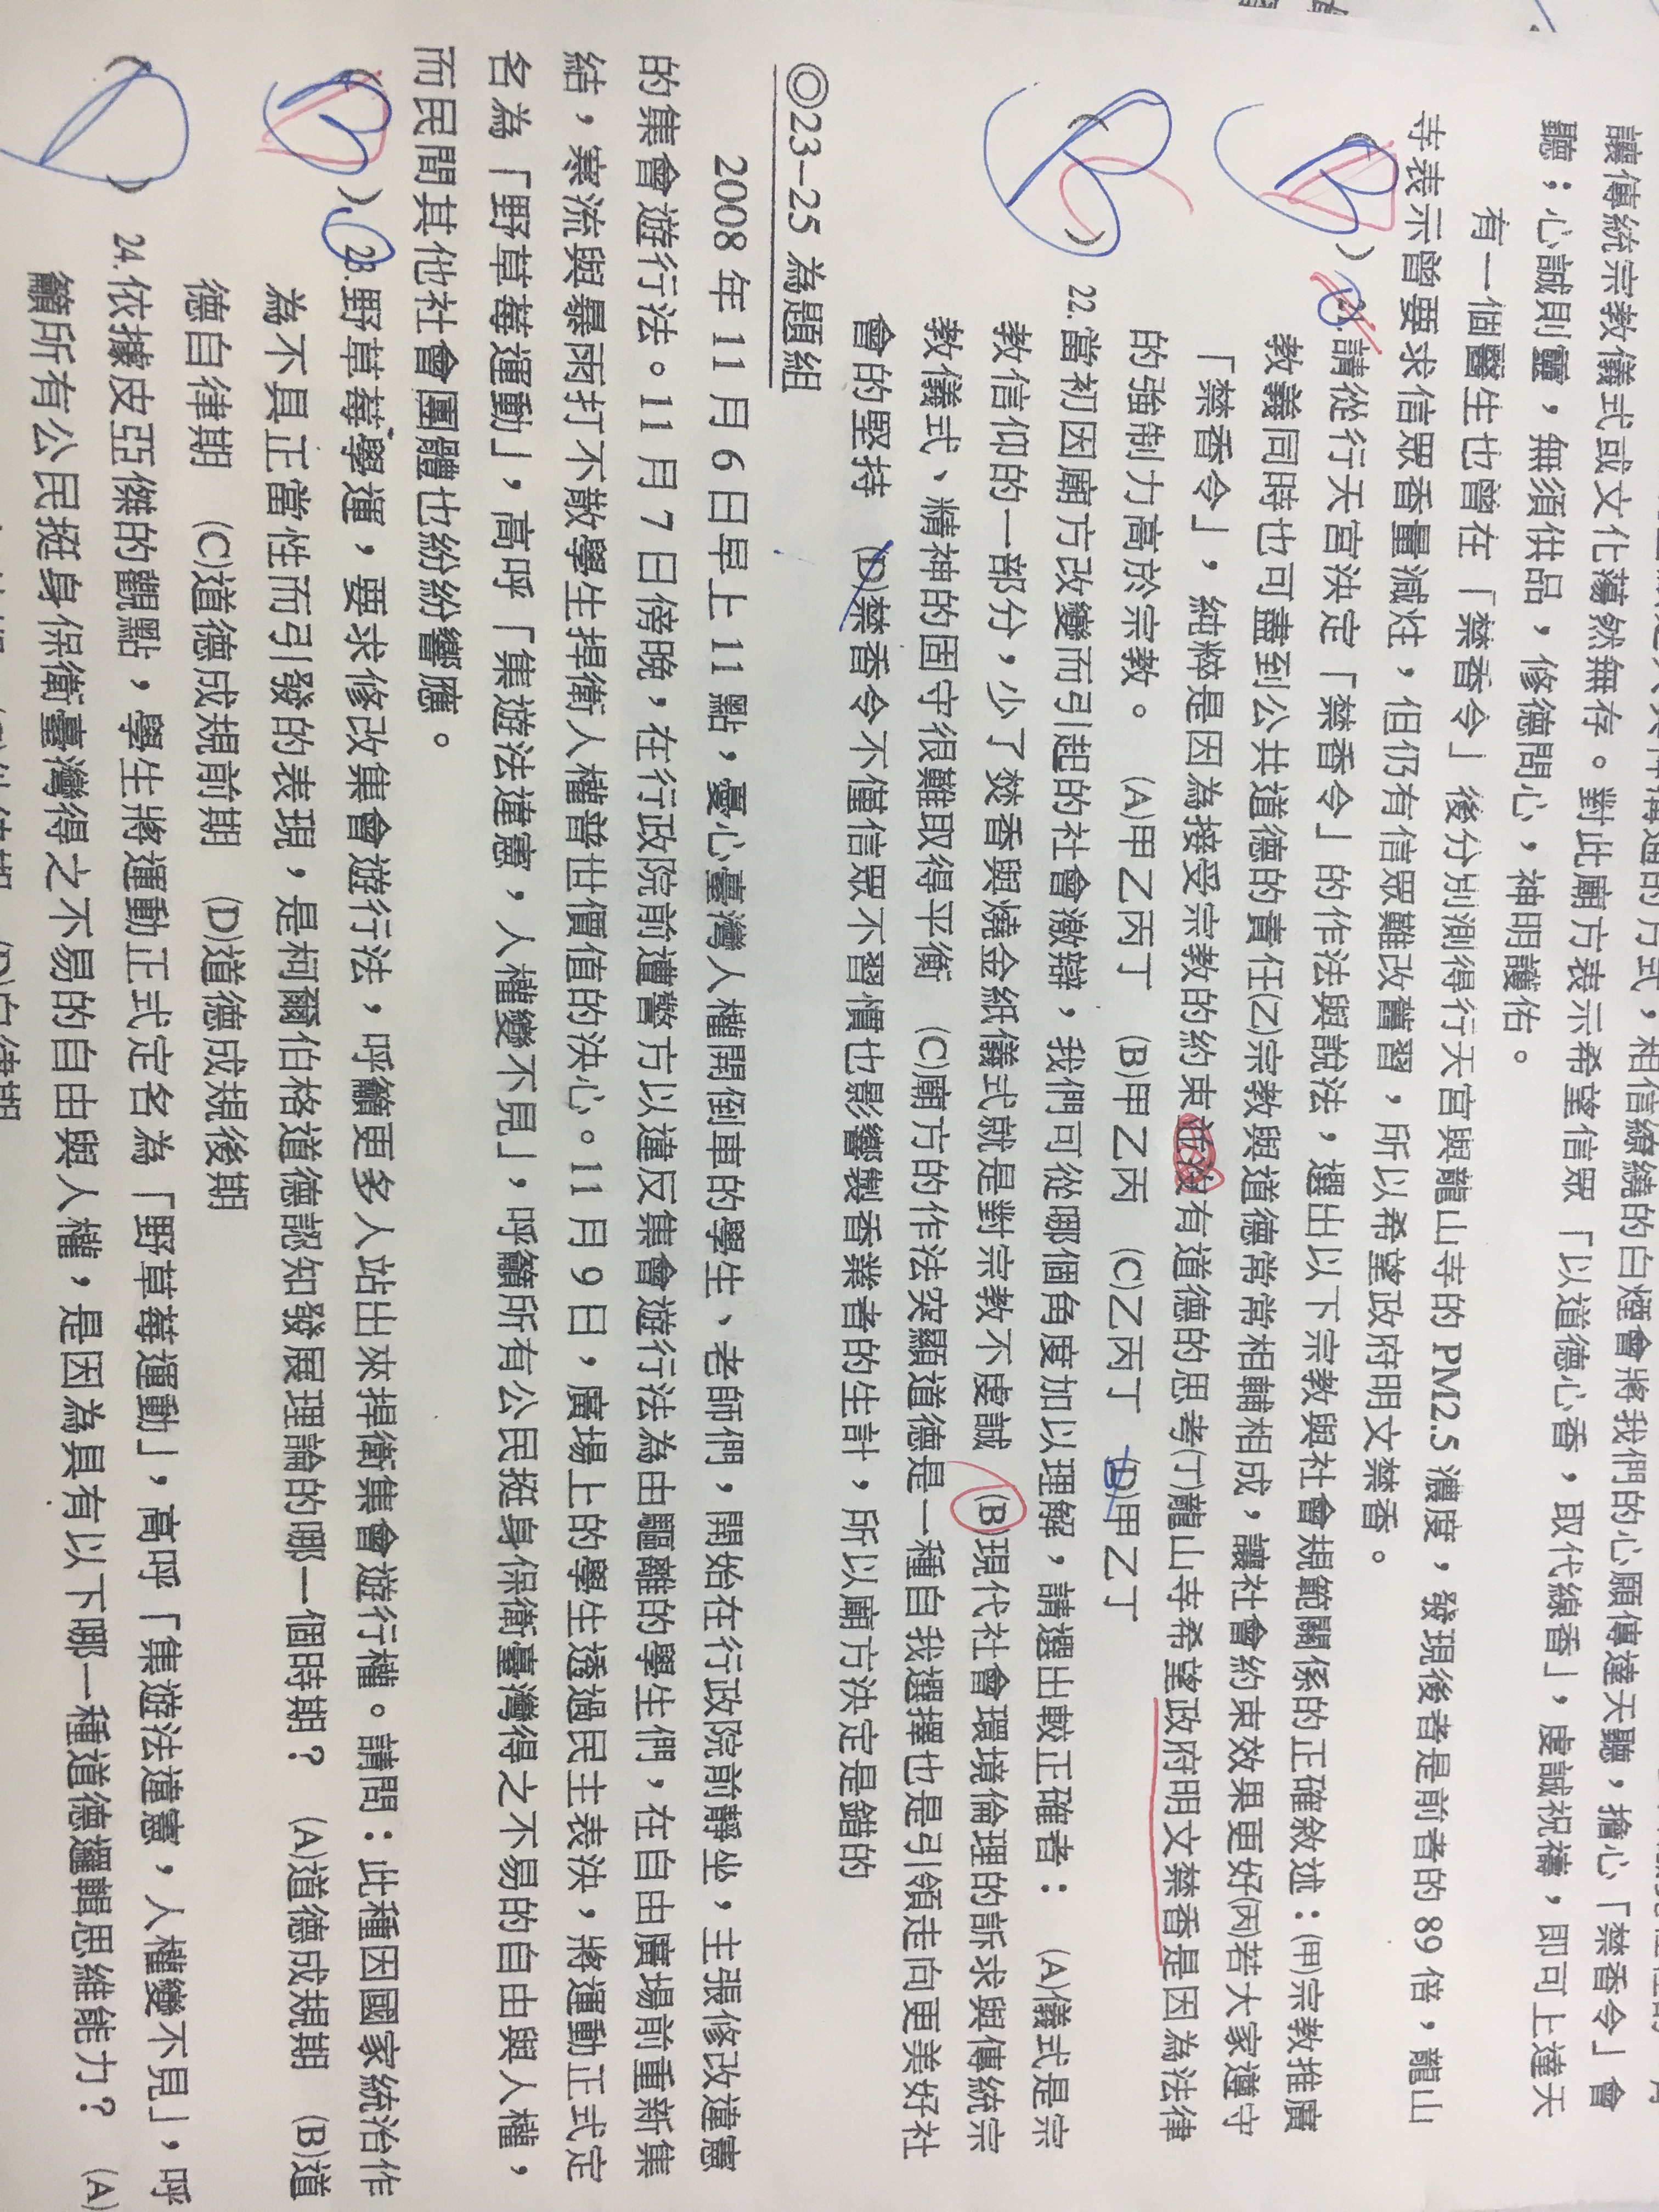 讓傳統宗教儀式或文化蕩然無存。對此廟方表示希望信眾「以道德心香,取代線香」,虔誠祝禱,即可上達天
聽;心誠則靈,無須供品,修德問心,神明護佑。
有一個醫生也曾在「禁香令」後分別測得行天宮與龍山寺的 PM2.5 濃度,發現後者是前者的 89 倍,龍山
寺表示曾要求信眾香量減炷,但仍有信眾難改舊習,所以希望政府明文禁香。
(B) 21.請從行天宮決定「禁香令」的作法與說法,選出以下宗教與社會規範關係的正確敘述:(甲)宗教推廣
教義同時也可盡到公共道德的責任(乙)宗教與道德常常相輔相成,讓社會約束效果更好(丙)若大家遵守
「禁香令」,純粹是因為接受宗教的約束 有道德的思考(丁)龍山寺希望政府明文禁香是因為法律
的強制力高於宗教。 (A)甲乙丙丁 (B)甲乙丙 (C)乙丙丁 (D)甲乙丁
(B) 22.當初因廟方改變而引起的社會激辯,我們可從哪個角度加以理解,請選出較正確者: (A)儀式是宗
教信仰的一部分,少了焚香與燒金紙儀式就是對宗教不虔誠 (B)現代社會環境倫理的訴求與傳統宗
教儀式、精神的固守很難取得平衡 (C)廟方的作法突顯道德是一種自我選擇也是引領走向更美好社
會的堅持 (D)禁香令不僅信眾不習慣也影響製香業者的生計,所以廟方決定是錯的
◎23-25 為題組
2008 年 11 月 6 日早上 11 點,憂心臺灣人權開倒車的學生、老師們,開始在行政院前靜坐,主張修改違憲
的集會遊行法。11 月 7 日傍晚,在行政院前遭警方以違反集會遊行法為由驅離的學生們,在自由廣場前重新集
結,寒流與暴雨打不散學生捍衛人權普世價值的決心。11 月 9 日,廣場上的學生透過民主表決,將運動正式定
名為「野草莓運動」,高呼「集遊法違憲,人權變不見」,呼籲所有公民挺身保衛臺灣得之不易的自由與人權,
而民間其他社會團體也紛紛響應。
( ) 23.野草莓學運,要求修改集會遊行法,呼籲更多人站出來捍衛集會遊行權。請問:此種因國家統治作
為不具正當性而引發的表現,是柯爾伯格道德認知發展理論的哪一個時期? (A)道德成規期 (B)道
德自律期 (C)道德成規前期 (D)道德成規後期
( ) 24.依據皮亞傑的觀點,學生將運動正式定名為「野草莓運動」,高呼「集遊法違憲,人權變不見」,呼
籲所有公民挺身保衛臺灣得之不易的自由與人權,是因為具有以下哪一種道德邏輯思維能力? (A)